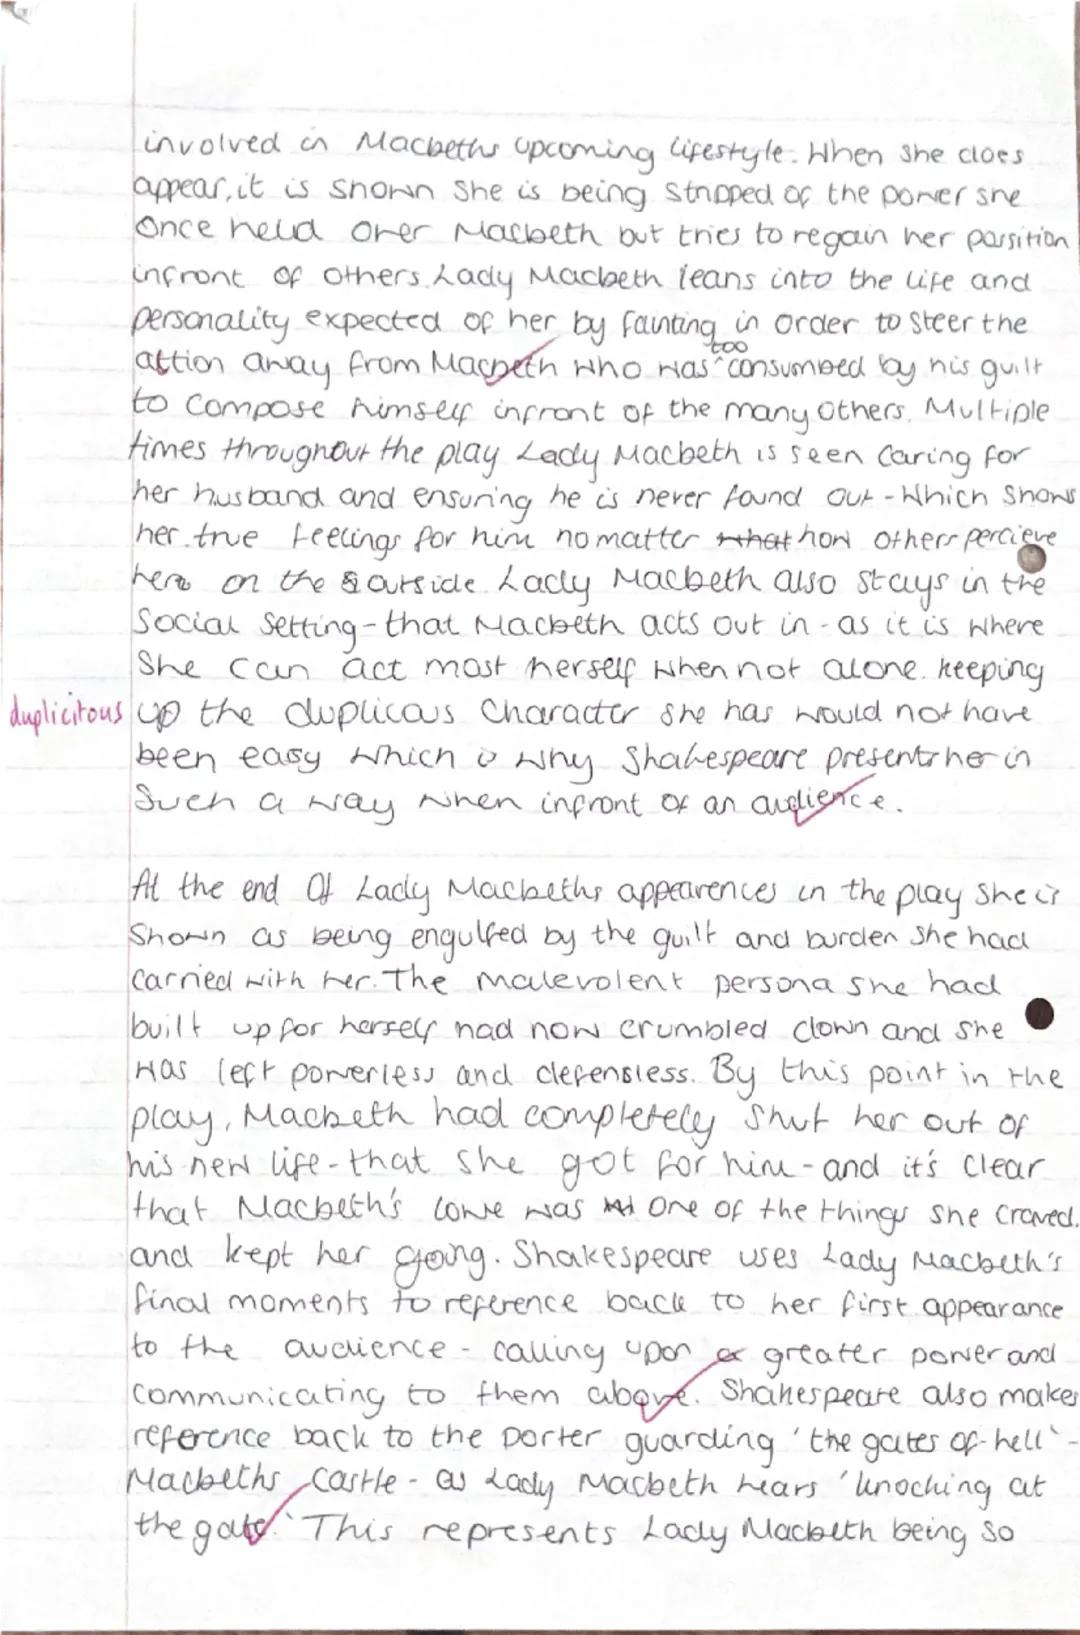 involved in Macbeths upcoming lifestyle. When she does
appear, it is shown she is being stripped of the power she
once held over Macbeth but tries to regain her parsition
infront of others. Lady Macbeth leans into the life and
personality expected of her by fainting in order to steer the
attion away from Macbeth who was too consumbed by his guilt
to compose himself infront of the many others. Multiple
times throughout the play Lady Macbeth is seen caring for
her husband and ensuring he is never found out - which shows
her true feelings for him no matter that how others percieve
her on the outside. Lady Macbeth also stays in the
social setting - that Macbeth acts out in - as it is where
she can act most herself when not alone. keeping
duplicitous up the duplicous character she has would not have
been easy which is why Shakespeare presents her in
such a way when infront of an audience.
At the end of Lady Macbeths appearences in the play she is
shown as being engulfed by the guilt and burden she had
carried with her. The malevolent persona she had
built up for herself had now crumbled down and she
was left powerless and defensless. By this point in the
play, Macbeth had completely shut her out of
his new life - that she got for him - and it's clear
that Macbeth's love was one of the things she craved.
and kept her going. Shakespeare uses Lady Macbeth's
final moments to reference back to her first appearance
to the audience - calling upon a greater power and
communicating to them above. Shakespeare also makes
reference back to the porter guarding 'the gates of hell' -
Macbeths castle - as Lady Macbeth hears 'knocking at
the gate.' This represents Lady Macbeth being so